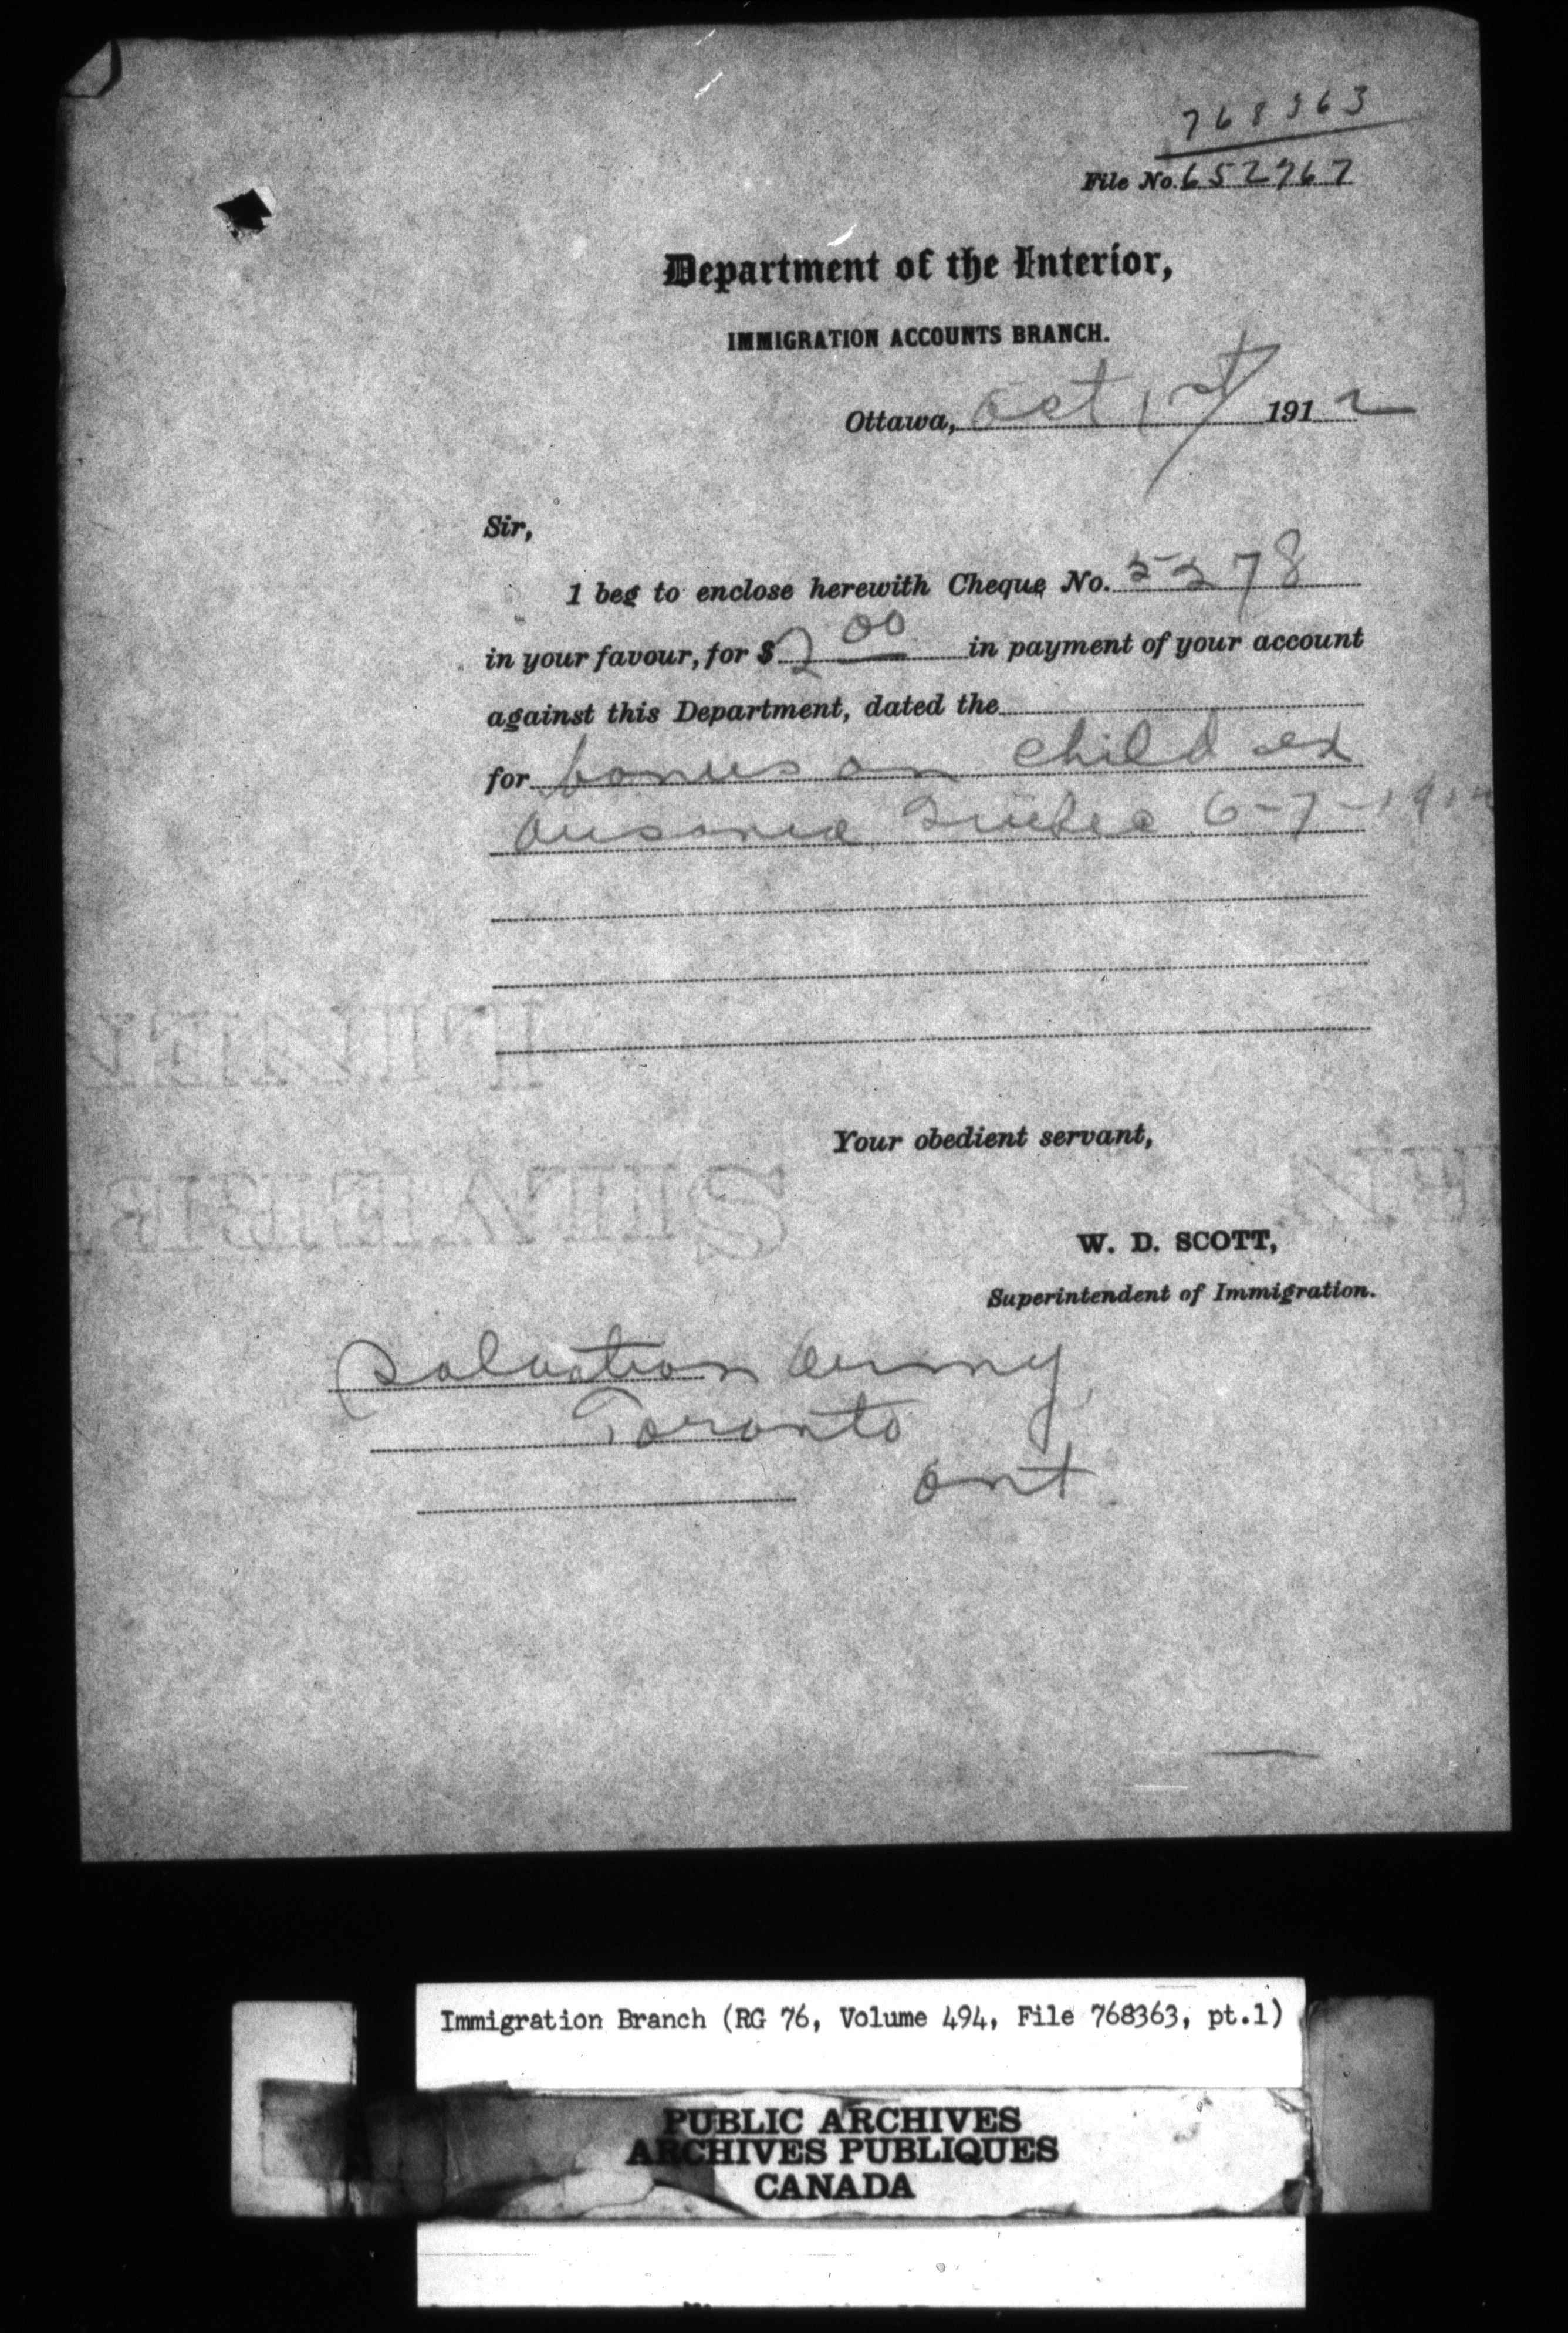 768363
File No. 652967
Department of the Interior,
IMMIGRATION ACCOUNTS BRANCH.
Ottawa, Oct 1st 1912
Sir,
I beg to enclose herewith Cheque No. 5278
in your favour, for $ 2 00 in payment of your account
against this Department, dated the
for bonus on child ex
Ausonia Quebec 6-7-1912
Your obedient servant,
W. D. SCOTT,
Superintendent of Immigration.
Salvation Army
Toronto
Ont
Immigration Branch (RG 76, Volume 494, File 768363, pt.1)
PUBLIC ARCHIVES
ARCHIVES PUBLIQUES
CANADA